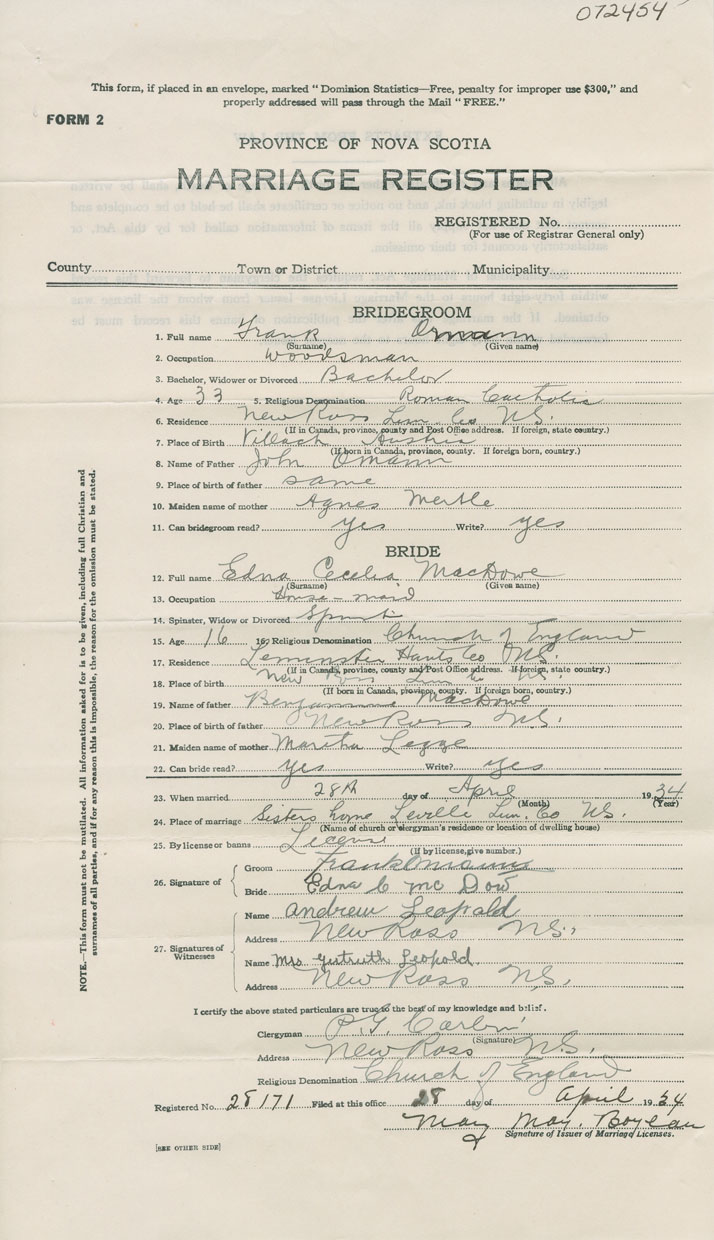 072454
This form, if placed in an envelope, marked "Dominion Statistics—Free, penalty for improper use $300," and
properly addressed will pass through the Mail "FREE."
FORM 2
PROVINCE OF NOVA SCOTIA
MARRIAGE REGISTER
REGISTERED No.
(For use of Registrar General only)
County Town or District Municipality
BRIDEGROOM
1. Full name Frank Omann
(Surname) (Given name)
2. Occupation Woodsman
3. Bachelor, Widower or Divorced Bachelor
4. Age 33 5. Religious Denomination Roman Catholic
6. Residence New Ross Lun. Co N.S.
(If in Canada, province, county and Post Office address. If foreign, state country.)
7. Place of Birth Villach Austria
(If born in Canada, province, county. If foreign born, country.)
8. Name of Father John Omann
9. Place of birth of father same
10. Maiden name of mother Agnes Mertle
11. Can bridegroom read? yes Write? yes
BRIDE
12. Full name Edna Cecelia MacDowe
(Surname) (Given name)
13. Occupation House-maid
14. Spinster, Widow or Divorced
15. Age 16 16. Religious Denomination Church of England
17. Residence Leminster Hants Co N.S.
(If in Canada, province, county and Post Office address. If foreign, state country.)
18. Place of birth New Ross Lun Co N.S.
(If born in Canada, province, county. If foreign born, country.)
19. Name of father MacDowe
20. Place of birth of father New Ross N.S.
21. Maiden name of mother Martha Legge
22. Can bride read? yes Write? yes
23. When married 28th day of April 1934
(Month) (Year)
24. Place of marriage Sisters home Leville Lun. Co N.S.
(Name of church or clergyman's residence or location of dwelling house)
25. By license or banns License
(If by license, give number.)
26. Signature of Groom Frank Omann
Bride Edna C mc Dow
27. Signatures of Witnesses
Name Andrew Leopold
Address New Ross N.S.
Name Mrs Leopold.
Address New Ross N.S.
I certify the above stated particulars are true to the best of my knowledge and belief.
Clergyman P.G.
(Signature)
Address New Ross N.S.
Religious Denomination Church of England
Registered No. 28171 Filed at this office 28 day of April 1934
May May. Boylan
Signature of Issuer of Marriage Licenses.
[SEE OTHER SIDE]
NOTE.—This form must not be mutilated. All information asked for is to be given, including full Christian and
surnames of all parties, and if for any reason this is impossible, the reason for the omission must be stated.